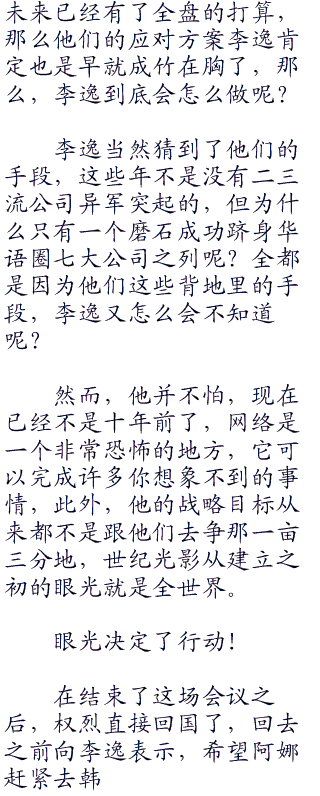 未来已经有了全盘的打算，
那么他们的应对方案李逸肯
定也是早就成竹在胸了，那
么，李逸到底会怎么做呢？
李逸当然猜到了他们的
手段，这些年不是没有二三
流公司异军突起的，但为什
么只有一个磨石成功跻身华
语圈七大公司之列呢？全都
是因为他们这些背地里的手
段，李逸又怎么会不知道
呢？
然而，他并不怕，现在
已经不是十年前了，网络是
一个非常恐怖的地方，它可
以完成许多你想象不到的事
情，此外，他的战略目标从
来都不是跟他们去争那一亩
三分地，世纪光影从建立之
初的眼光就是全世界。
眼光决定了行动！
在结束了这场会议之
后，权烈直接回国了，回去
之前向李逸表示，希望阿娜
赶紧去韩